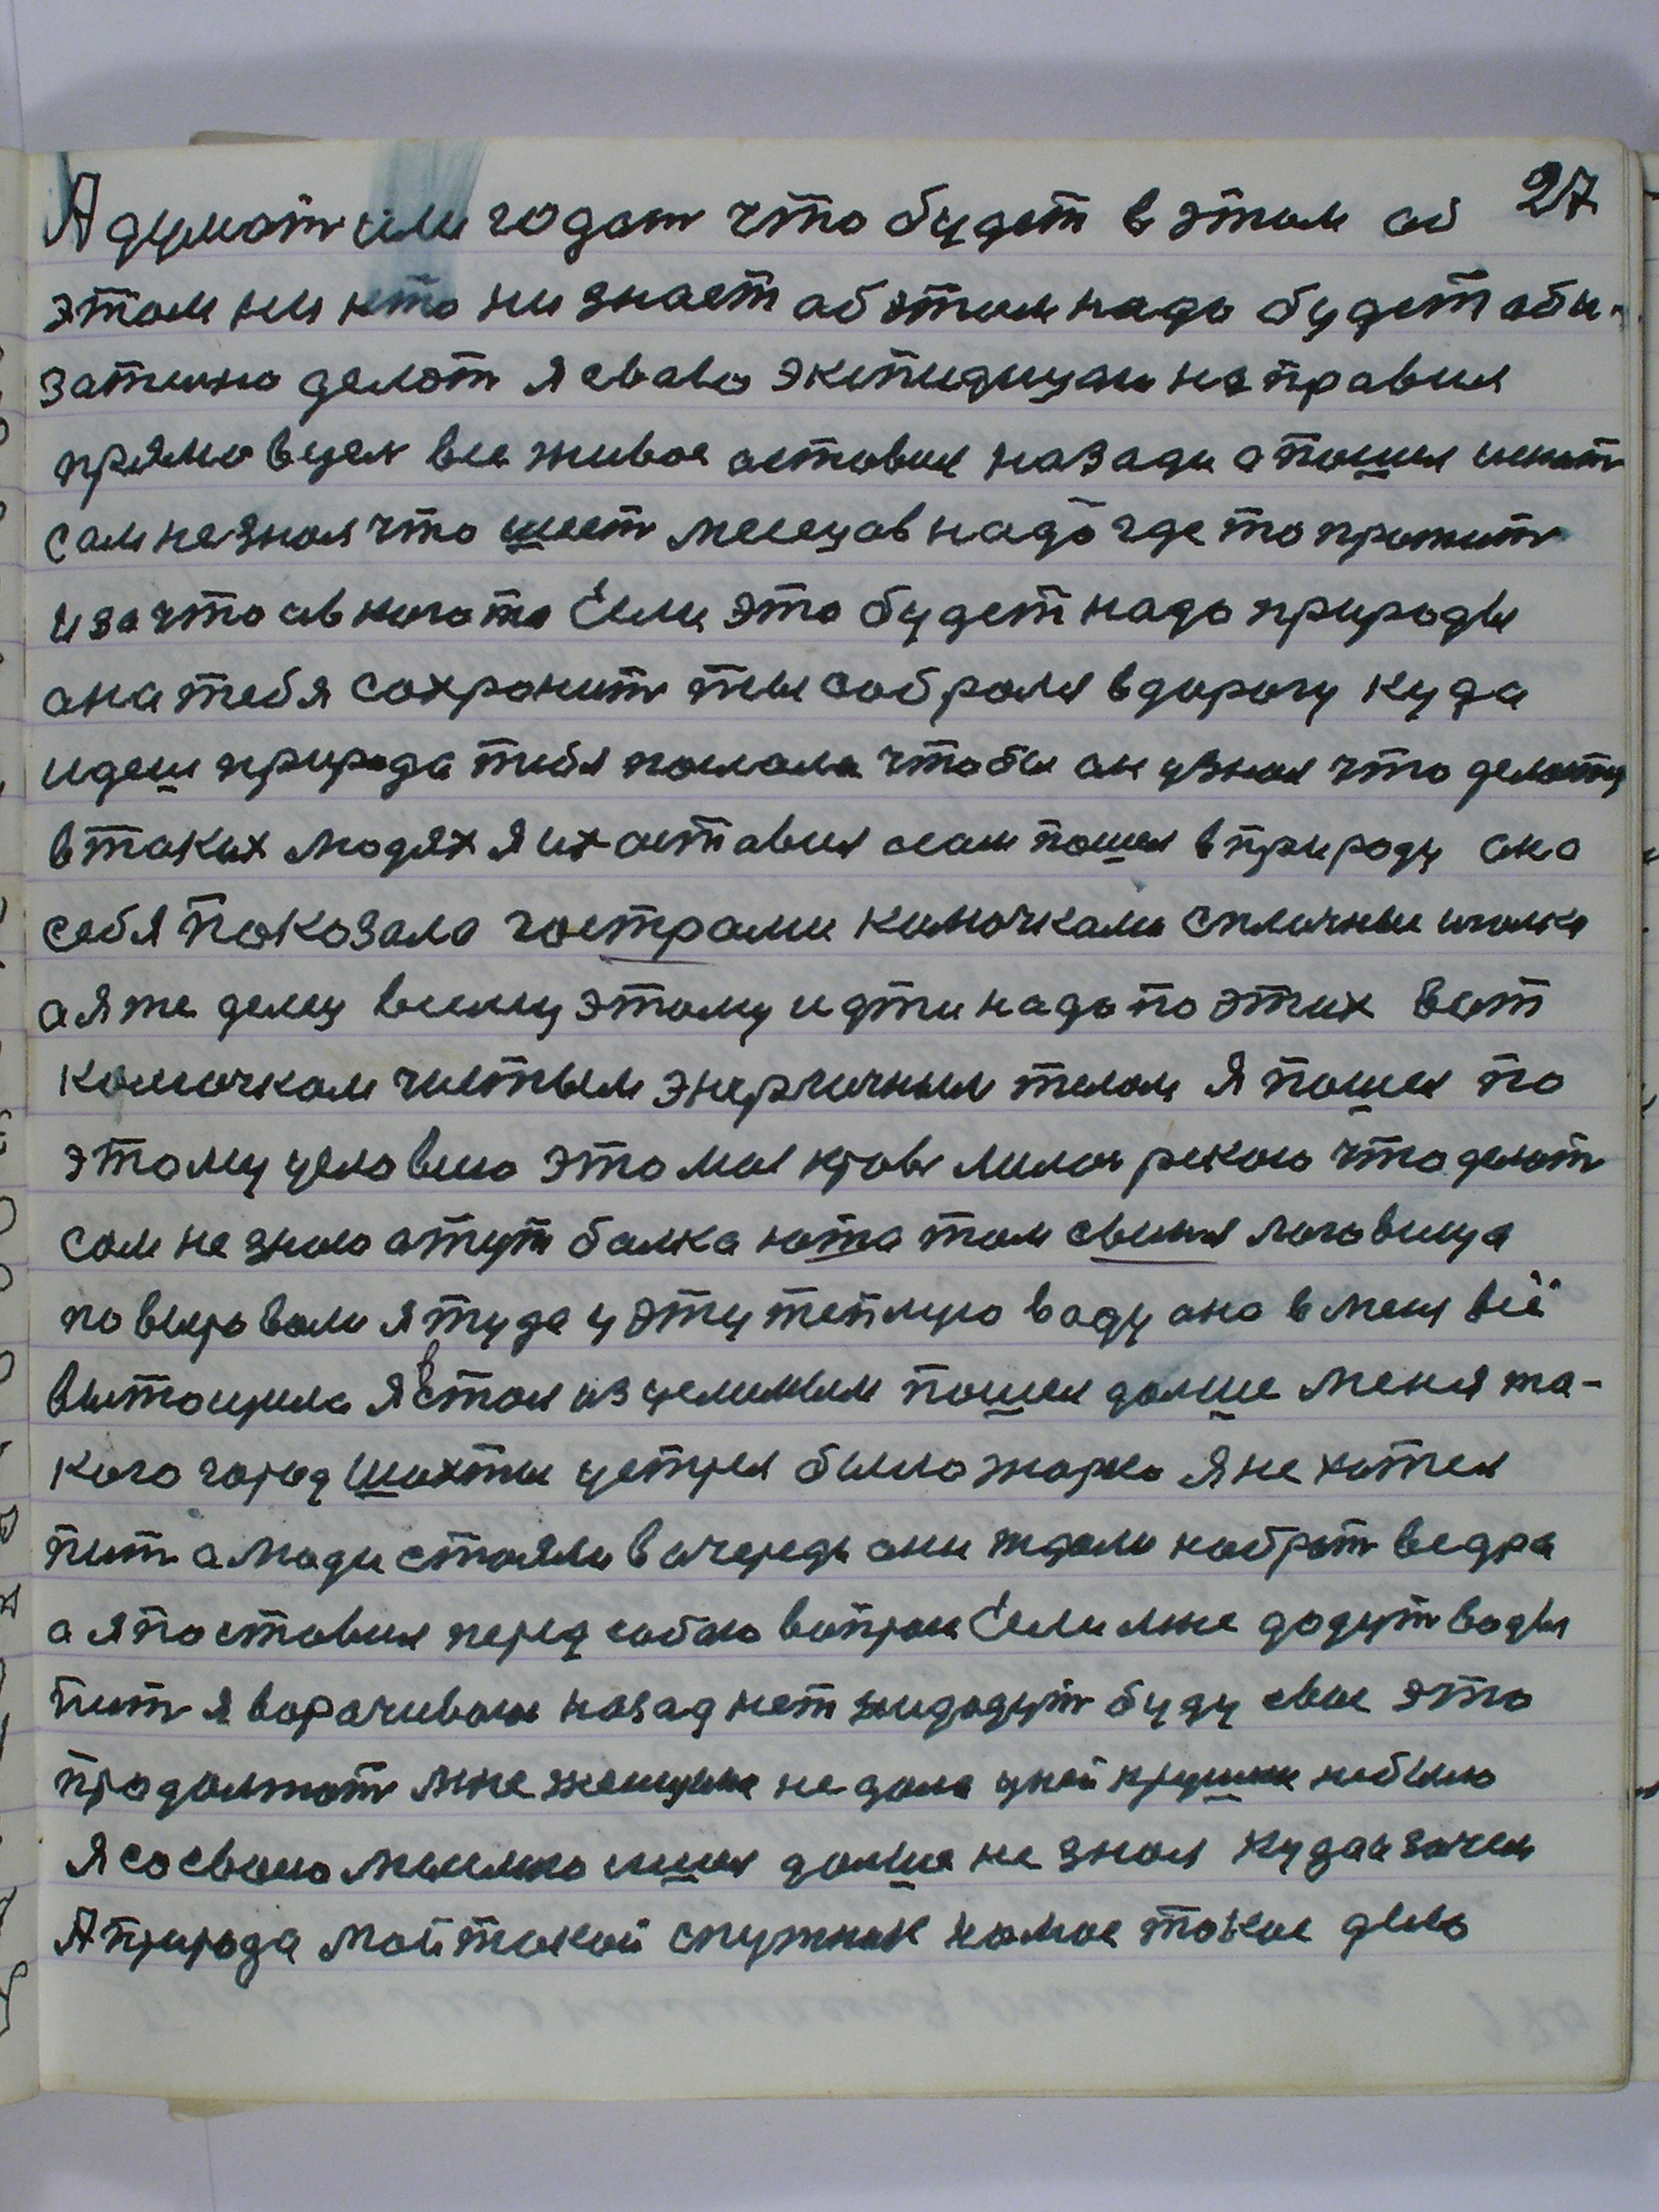 27
А думат или годат что будет в этом об
этом ни кто ни знает об этом надо будет обы-
зателно делат я сваю экспидицию направил
прямо вцел все живое оставил назади а пошел искат
сам не зная что шест месецов надо где то прожит
и за что и в кого то Если это будет надо природы
она тебя сохранит ты собрался в дорогу куда
идеш природа тибя послала чтобы он узнал что делаетца
в таких людях я их оставил а сам пошел в природу она
себя показала гострами комочками сплочные иголке
а я же делец всему этому идти надо по этих вот
комочкам чистым энергичным телом Я пошел по
этому условию это моя кровь лилась рекою что делат
сам не знаю а тут балка юта там свиня логовища
повырывали я туда у эту теплую ваду она в меня всё
вытощила Я встал изцелимым пошел далше меня та-
кого город Шахты устрел было жарко Я не хотел
пит а люди стояли в очередь они ждали набрат ведра
а я поставил перед собою вопрос Если мне дадут воды
пит я ворочиваюс назад нет нидадут буду свое это
продолжат мне женщина не дала у ней кружки небыло
Я со своею мыслию ишел далше не зная куда и зачем
А природа мой такой спутник на мое такое дело